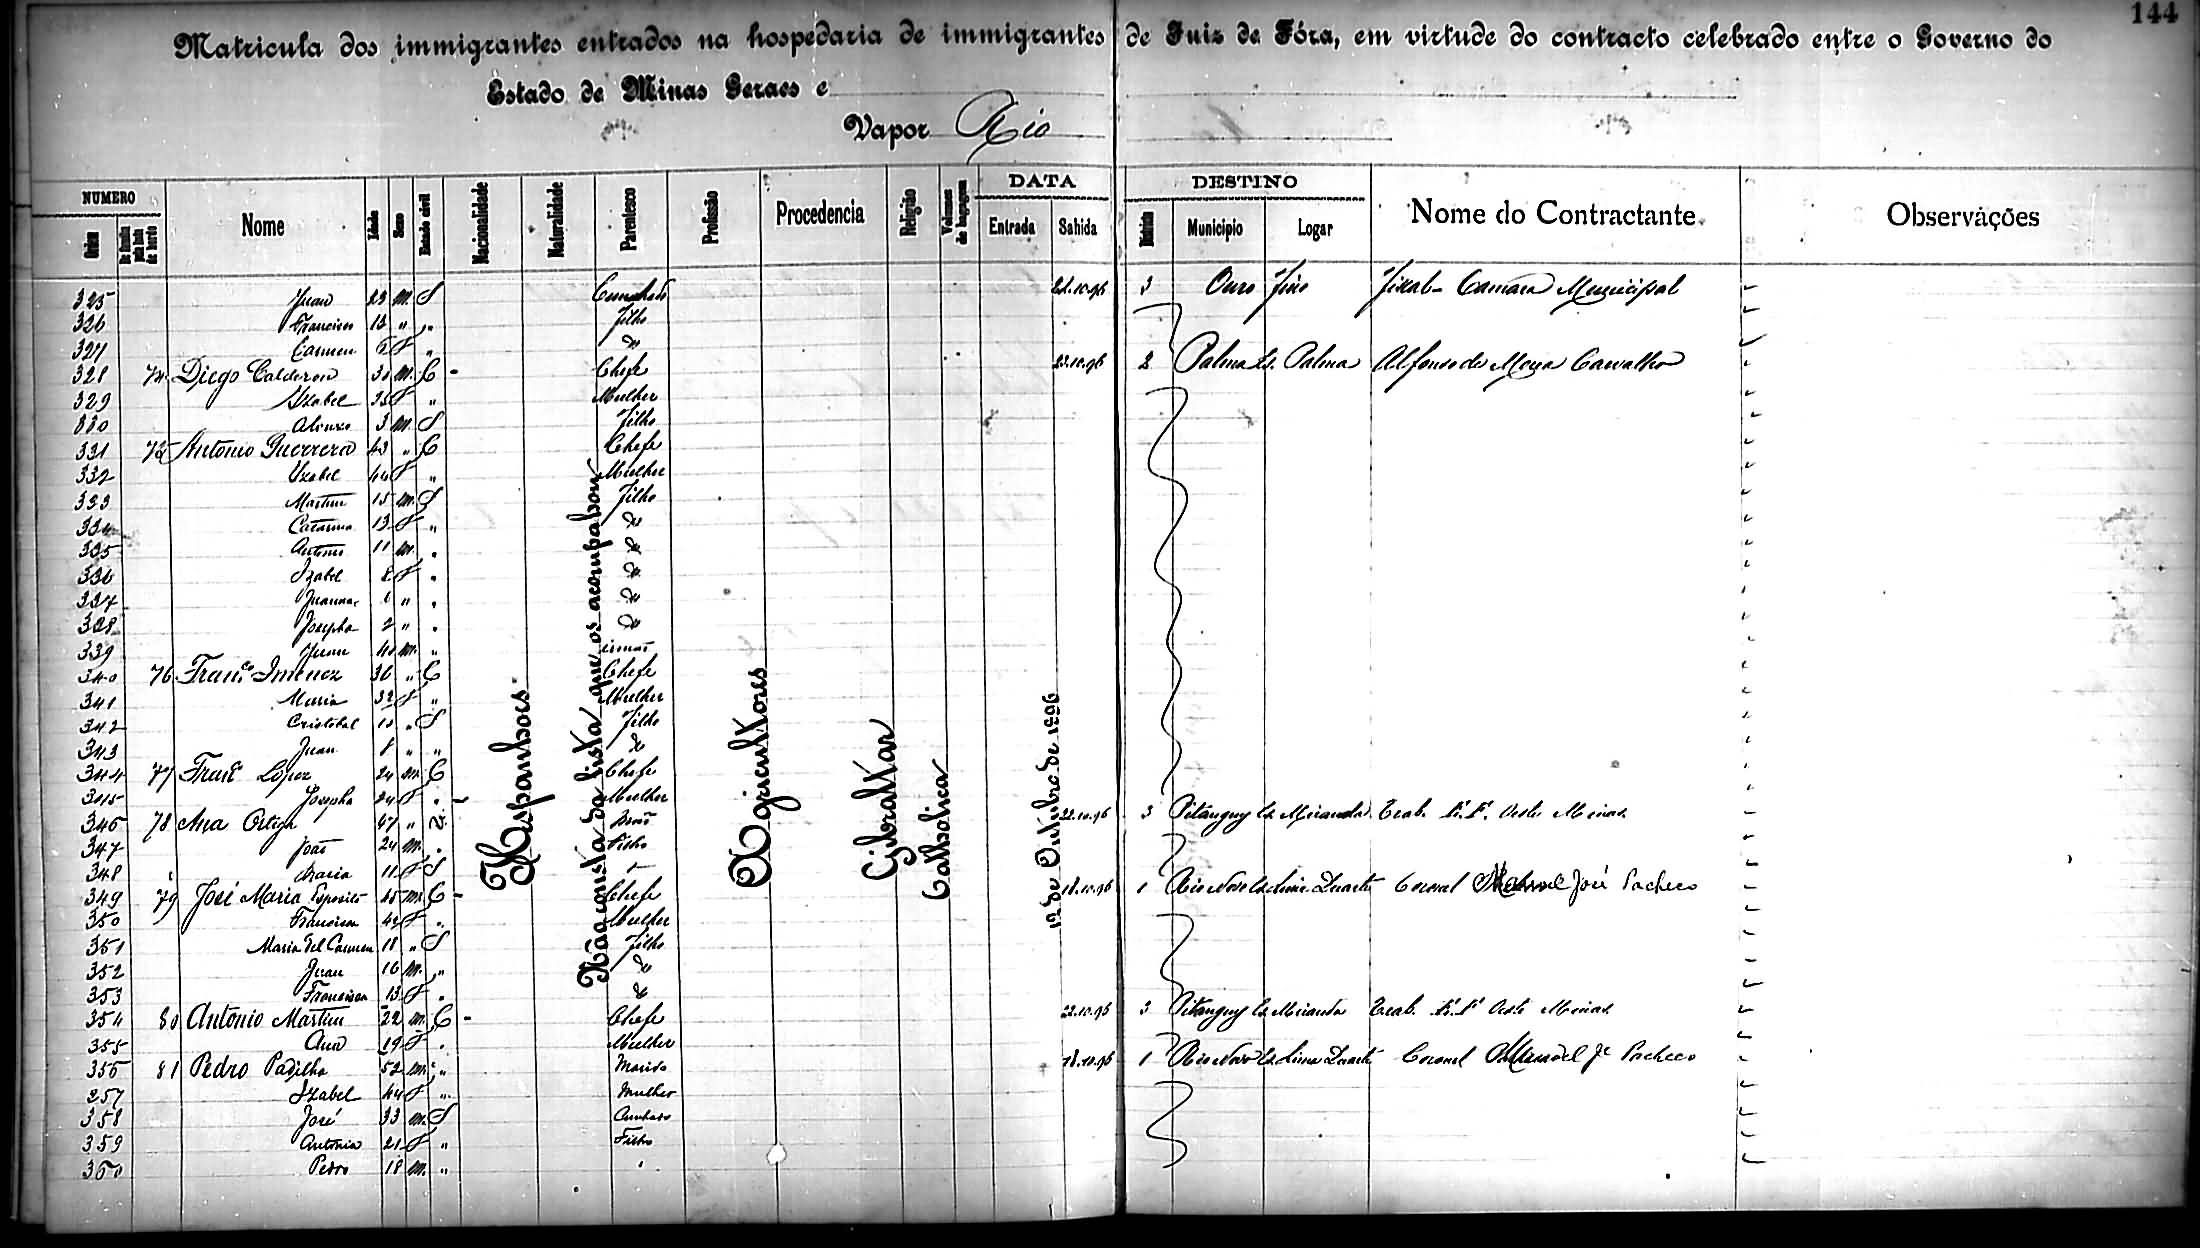 144
Matricula dos immigrantes entrados na hospedaria de immigrantes de Juiz de Fóra, em virtude do contracto celebrado entre o Governo do
Estado de Minas Geraes e
Vapor Rio
NUMERO Nome Idade Sexo Estado civil Nacionalidade Naturalidade Parentesco Profissão Procedencia Religião Volumes de bagagem DATA DESTINO Nome do Contractante Observações
Ordem De familia pela lista de bordo Entrada Sahida Districto Municipio Logar
325 Juan 23 m S Cunhado 22.10.96 3 Ouro Fino Fiscal Camara Municipal
326 Francisco 13 " " Filho
327 Carmen f " "
328 74 Diego Calderon m. C - Chefe 23.10.96 2 Palma Est. Palma Alfonso de Carvalho
329 Izabel 35 f " Mulher
330 Alonso 3 m S Filho
331 75 Antonio Guerrero 43 " C Chefe
332 Izabel 44 f " Mulher
333 Martin 15 m. S Filho
334 Catarina 13 f "
335 Antonio 11 m. "
336 Izabel 8 f "
337 Juanna 6 " "
338 Josepha 2 " "
339 Juan 40 m. " irmão
340 76 Franco Imenez 36 " C Chefe
341 Maria 32 f " Mulher
342 Cristobal 10 " S Filho
343 Juan 8 " "
344 77 Franco Lopez 24 m C Chefe
345 Josepha 24 f " - Mulher
346 78 Ana Ortega 47 " V. Mãe 22.10.96 3 Pitanguy Est. Miranda Trab. E. F. Oeste Minas
347 João 24 m. " Filho
348 Maria 11 f S "
349 79 José Maria Esposito 45 m. C - Chefe 18.10.96 1 Rio Novo Est. Lima Duarte Coronel Manoel José Pacheco
350 Francisca 42 f " Mulher
351 Maria del Carmen 18 " S Filho
352 Juan 16 m. "
353 Francisca 13 f "
354 80 Antonio Martin 22 m. C - Chefe 22.10.96 3 Pitanguy Est. Miranda Trab. E. F. Oeste Minas
355 Ana 19 f " Mulher
356 81 Pedro Padilha 52 m. " Marido 18.10.96 1 Rio Novo Est. Lima Duarte Coronel Manoel Je Pacheco
357 Izabel 44 f " Mulher
358 José 33 m. S Cunhado
359 Antonia 21 f " Filho
360 Pedro 18 m. " "
Hespanhoes
Não consta da lista que os acompahou
Agricultores
Gibraltar
Catholica
12 de Outubro de 1896